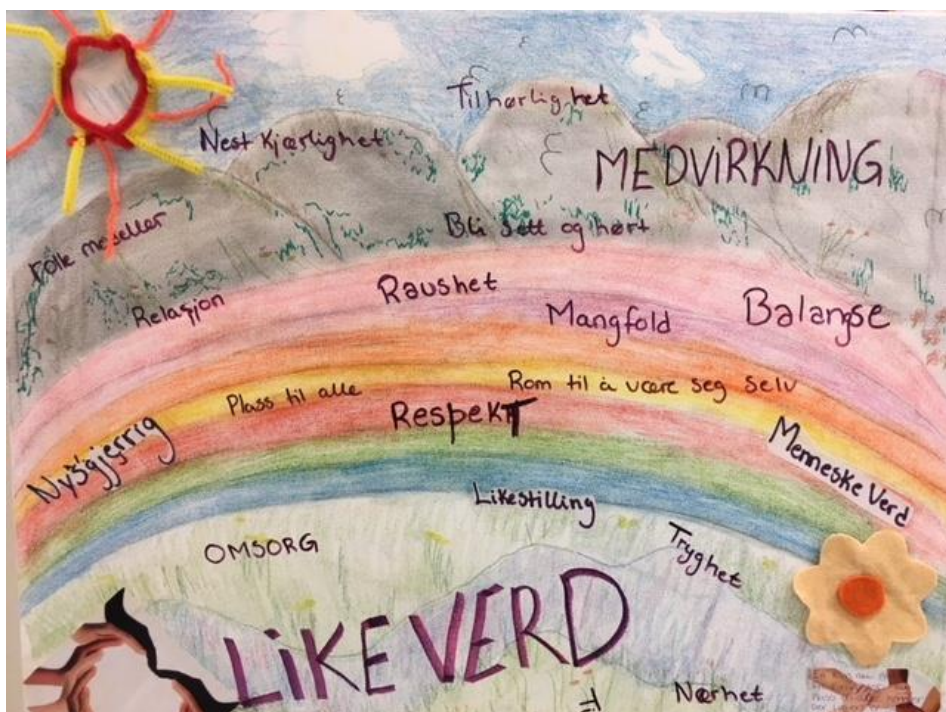 Tilhørlighet
Nest Kjærlighet
MEDVIRKNING
Bli sett og hørt
Relasjon
Raushet
Mangfold
Balangse
Plass til alle
Rom til å være seg selv
Respekt
Nysgjerrig
Menneske Verd
Likestilling
OMSORG
Tryghet
LIKEVERD
Nærhet